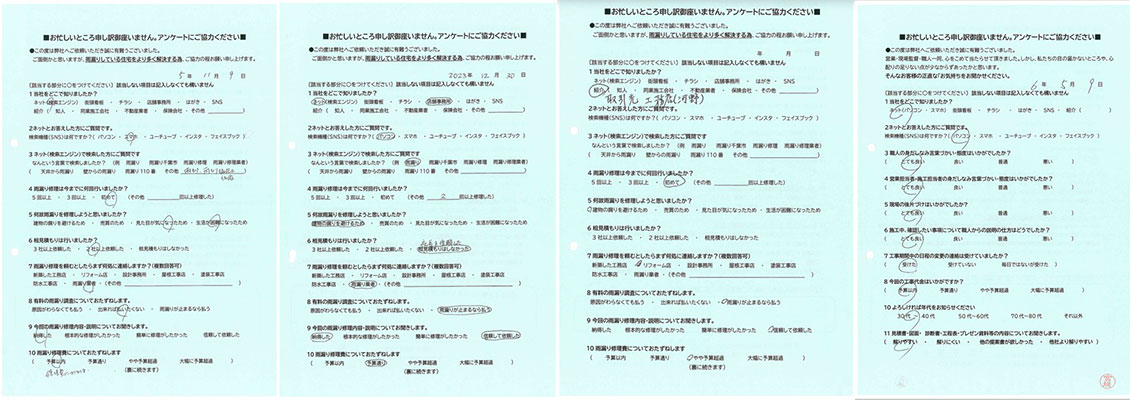 ■お忙しいところ申し訳御座いません。アンケートにご協力ください■
●この度は弊社へご依頼いただき誠に有難うございました。
ご面倒かと思いますが、雨漏りしている住宅をより多く解決する為、ご協力の程お願い申し上げます。
5年 11月 9日
(該当する部分に○をつけてください) 該当しない項目は記入しなくても構いません
1 当社をどこで知りましたか?
ネット(検索エンジン) ・ 街頭看板 ・ チラシ ・ 店舗事務所 ・ はがき ・ SNS
紹介 ( 知人 ・ 同業施工会社 ・ 不動産業者 ・ 保険会社 ・ その他 )
2 ネットとお答えした方にご質問です。
検索機種(SNS)は何ですか? ( パソコン ・ スマホ ・ ユーチューブ ・ インスタ ・ フェイスブック )
3 ネット(検索エンジン)で検索した方にご質問です
なんという言葉で検索しましたか? ( 例 雨漏り 雨漏り千葉市 雨漏り修理 雨漏り修理業者)
( 天井から雨漏り 壁からの雨漏り 雨漏り110番 その他 )
4 雨漏り修理は今までに何回行いましたか?
5回以上 ・ 3回以上 ・ 初めて ( その他 回以上修理した)
5 何故雨漏りを修理しようと思いましたか?
建物の腐りを避けるため ・ 売買のため ・ 見た目が気になったため ・ 生活が困難になったため
6 相見積もりは行いましたか?
3社以上依頼した ・ 2社以上依頼した ・ 相見積もりはしなかった
7 雨漏り修理を頼むとしたらまず何処に連絡しますか?(複数回答可)
新築した工務店 ・ リフォーム店 ・ 設計事務所 ・ 屋根工事店 ・ 塗装工事店
防水工事店 ・ 雨漏り業者 ・ (その他 )
8 有料の雨漏り調査についておたずねします。
原因がわらなくても払う ・ 出来れば払いたくない ・ 雨漏りが止まるなら払う
9 今回の雨漏り修理内容・説明についてお聞きします。
納得した ・ 根本的な修理がしたかった ・ 簡単に修理がしたかった ・ 信頼して依頼した
10 雨漏り修理費についておたずねします
( 予算以内 予算通り やや予算超過 大幅に予算超過 )
(裏に続きます)
■お忙しいところ申し訳御座いません。アンケートにご協力ください■
●この度は弊社へご依頼いただき誠に有難うございました。
ご面倒かと思いますが、雨漏りしている住宅をより多く解決する為、ご協力の程お願い申し上げます。
2023年 12月 30日
(該当する部分に○をつけてください) 該当しない項目は記入しなくても構いません
1 当社をどこで知りましたか?
ネット(検索エンジン) ・ 街頭看板 ・ チラシ ・ 店舗事務所 ・ はがき ・ SNS
紹介 ( 知人 ・ 同業施工会社 ・ 不動産業者 ・ 保険会社 ・ その他 )
2 ネットとお答えした方にご質問です。
検索機種(SNS)は何ですか? ( パソコン ・ スマホ ・ ユーチューブ ・ インスタ ・ フェイスブック )
3 ネット(検索エンジン)で検索した方にご質問です
なんという言葉で検索しましたか? ( 例 雨漏り 雨漏り千葉市 雨漏り修理 雨漏り修理業者)
( 天井から雨漏り 壁からの雨漏り 雨漏り110番 その他 )
4 雨漏り修理は今までに何回行いましたか?
5回以上 ・ 3回以上 ・ 初めて ( その他 2 回以上修理した)
5 何故雨漏りを修理しようと思いましたか?
建物の腐りを避けるため ・ 売買のため ・ 見た目が気になったため ・ 生活が困難になったため
6 相見積もりは行いましたか?
3社以上依頼した ・ 2社以上依頼した ・ 相見積もりはしなかった
7 雨漏り修理を頼むとしたらまず何処に連絡しますか?(複数回答可)
新築した工務店 ・ リフォーム店 ・ 設計事務所 ・ 屋根工事店 ・ 塗装工事店
防水工事店 ・ 雨漏り業者 ・ (その他 )
8 有料の雨漏り調査についておたずねします。
原因がわらなくても払う ・ 出来れば払いたくない ・ 雨漏りが止まるなら払う
9 今回の雨漏り修理内容・説明についてお聞きします。
納得した ・ 根本的な修理がしたかった ・ 簡単に修理がしたかった ・ 信頼して依頼した
10 雨漏り修理費についておたずねします
( 予算以内 予算通り やや予算超過 大幅に予算超過 )
(裏に続きます)
■お忙しいところ申し訳御座いません。アンケートにご協力ください■
●この度は弊社へご依頼いただき誠に有難うございました。
ご面倒かと思いますが、雨漏りしている住宅をより多く解決する為、ご協力の程お願い申し上げます。
年 月 日
(該当する部分に○をつけてください) 該当しない項目は記入しなくても構いません
1 当社をどこで知りましたか?
ネット(検索エンジン) ・ 街頭看板 ・ チラシ ・ 店舗事務所 ・ はがき ・ SNS
紹介 ( 知人 ・ 同業施工会社 ・ 不動産業者 ・ 保険会社 ・ その他 )
取引先 工務店(河野)
2 ネットとお答えした方にご質問です。
検索機種(SNS)は何ですか? ( パソコン ・ スマホ ・ ユーチューブ ・ インスタ ・ フェイスブック )
3 ネット(検索エンジン)で検索した方にご質問です
なんという言葉で検索しましたか? ( 例 雨漏り 雨漏り千葉市 雨漏り修理 雨漏り修理業者)
( 天井から雨漏り 壁からの雨漏り 雨漏り110番 その他 )
4 雨漏り修理は今までに何回行いましたか?
5回以上 ・ 3回以上 ・ 初めて ( その他 回以上修理した)
5 何故雨漏りを修理しようと思いましたか?
建物の腐りを避けるため ・ 売買のため ・ 見た目が気になったため ・ 生活が困難になったため
6 相見積もりは行いましたか?
3社以上依頼した ・ 2社以上依頼した ・ 相見積もりはしなかった
7 雨漏り修理を頼むとしたらまず何処に連絡しますか?(複数回答可)
新築した工務店 ・ リフォーム店 ・ 設計事務所 ・ 屋根工事店 ・ 塗装工事店
防水工事店 ・ 雨漏り業者 ・ (その他 )
8 有料の雨漏り調査についておたずねします。
原因がわらなくても払う ・ 出来れば払いたくない ・ 雨漏りが止まるなら払う
9 今回の雨漏り修理内容・説明についてお聞きします。
納得した ・ 根本的な修理がしたかった ・ 簡単に修理がしたかった ・ 信頼して依頼した
10 雨漏り修理費についておたずねします
( 予算以内 予算通り やや予算超過 大幅に予算超過 )
(裏に続きます)
■お忙しいところ申し訳御座いません。アンケートにご協力ください■
●この度は弊社へご依頼いただき誠に有難うございました。
営業・現場監督・職人一同、心をこめて当たらせて頂きました。しかし、私たちの目の届かないところや、心
配りの足りない点が少なからずあったかと思います。
そんなお客様の正直な「お気持ちをお聞かせください。
6年 5月 9日
(該当する部分に○をつけてください) 該当しない項目は記入しなくても構いません
1 当社をどこで知りましたか?
ネット(パソコン・スマホ) 街頭看板 ・ チラシ ・ 店舗事務所 ・ はがき ・ SNS
2 ネットとお答えした方にご質問です。
検索機種(SNS)は何ですか? ( パソコン ・ スマホ ・ ユーチューブ ・ インスタ ・ フェイスブック )
3 職人の身だしなみ言葉づかい・態度はいかがでしたか?
( とても良い 良い 普通 悪い )
4 営業担当者・施工担当者の身だしなみ言葉づかい・態度はいかがでしたか?
( とても良い 良い 普通 悪い )
5 現場の後片づけはいかがでしたか?
( とても良い 良い 普通 悪い )
6 施工中、確認したい事項について職人からの説明の仕方はどうでしたか?
( とても良い 良い 普通 悪い )
7 工事期間中の日程の変更の連絡は受けていましたか?
( 受けた 受けていない 毎日ではないが受けた )
8 今回の工事代金はいかがですか?
( 予算以内 予算通り やや予算超過 大幅に予算超過 )
10 よろしければ年代をお知らせください
30代〜40代 50代〜60代 70代〜80代 それ以外
11 見積書・図面・診断書・工程表・プレゼン資料等の内容についてお聞きします。
( 解りやすい ・ 解りにくい ・ 他の提案書が欲しかった ・ 他社より解りやすい )